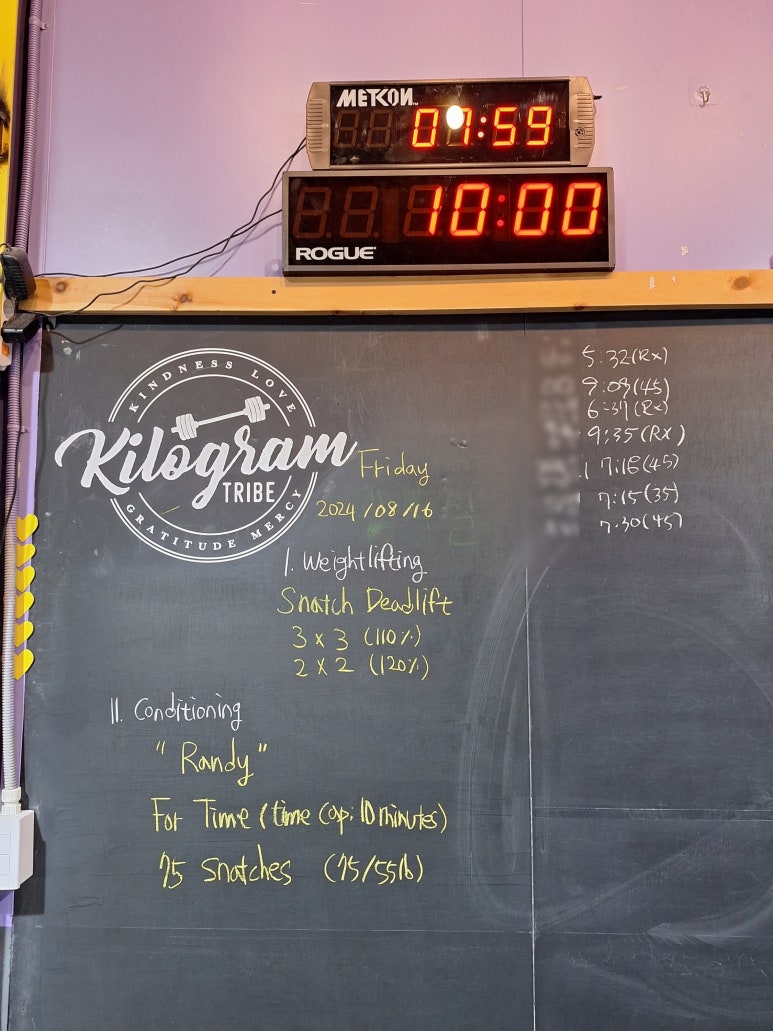 METCON
07:59
10:00
ROGUE
KINDNESS LOVE
Kilogram
TRIBE
GRATITUDE MERCY
Friday
2024/08/16
I. Weightlifting
Snatch Deadlift
3 x 3 (110%)
2 x 2 (120%)
II. Conditioning
"Randy"
For Time (time cap: 10 minutes)
75 Snatches (75/55lb)
5:32(Rx)
9:09(45)
6:37(Rx)
9:35(RX)
7:18(45)
7:15(35)
7:30(45)